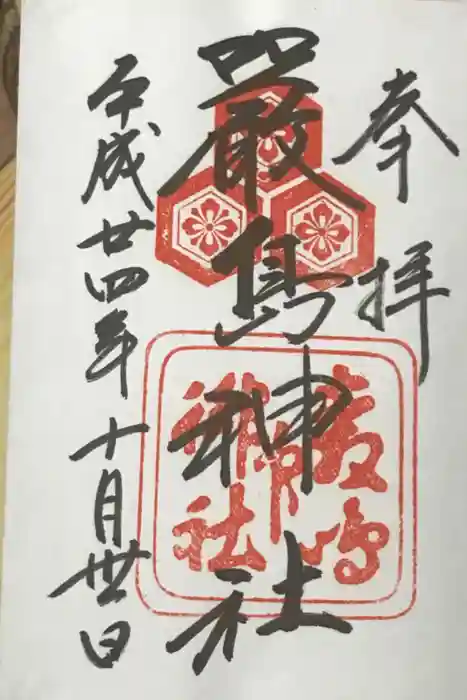 奉拝
嚴島神社
平成廿四年十月卅日
嚴嶋
神社